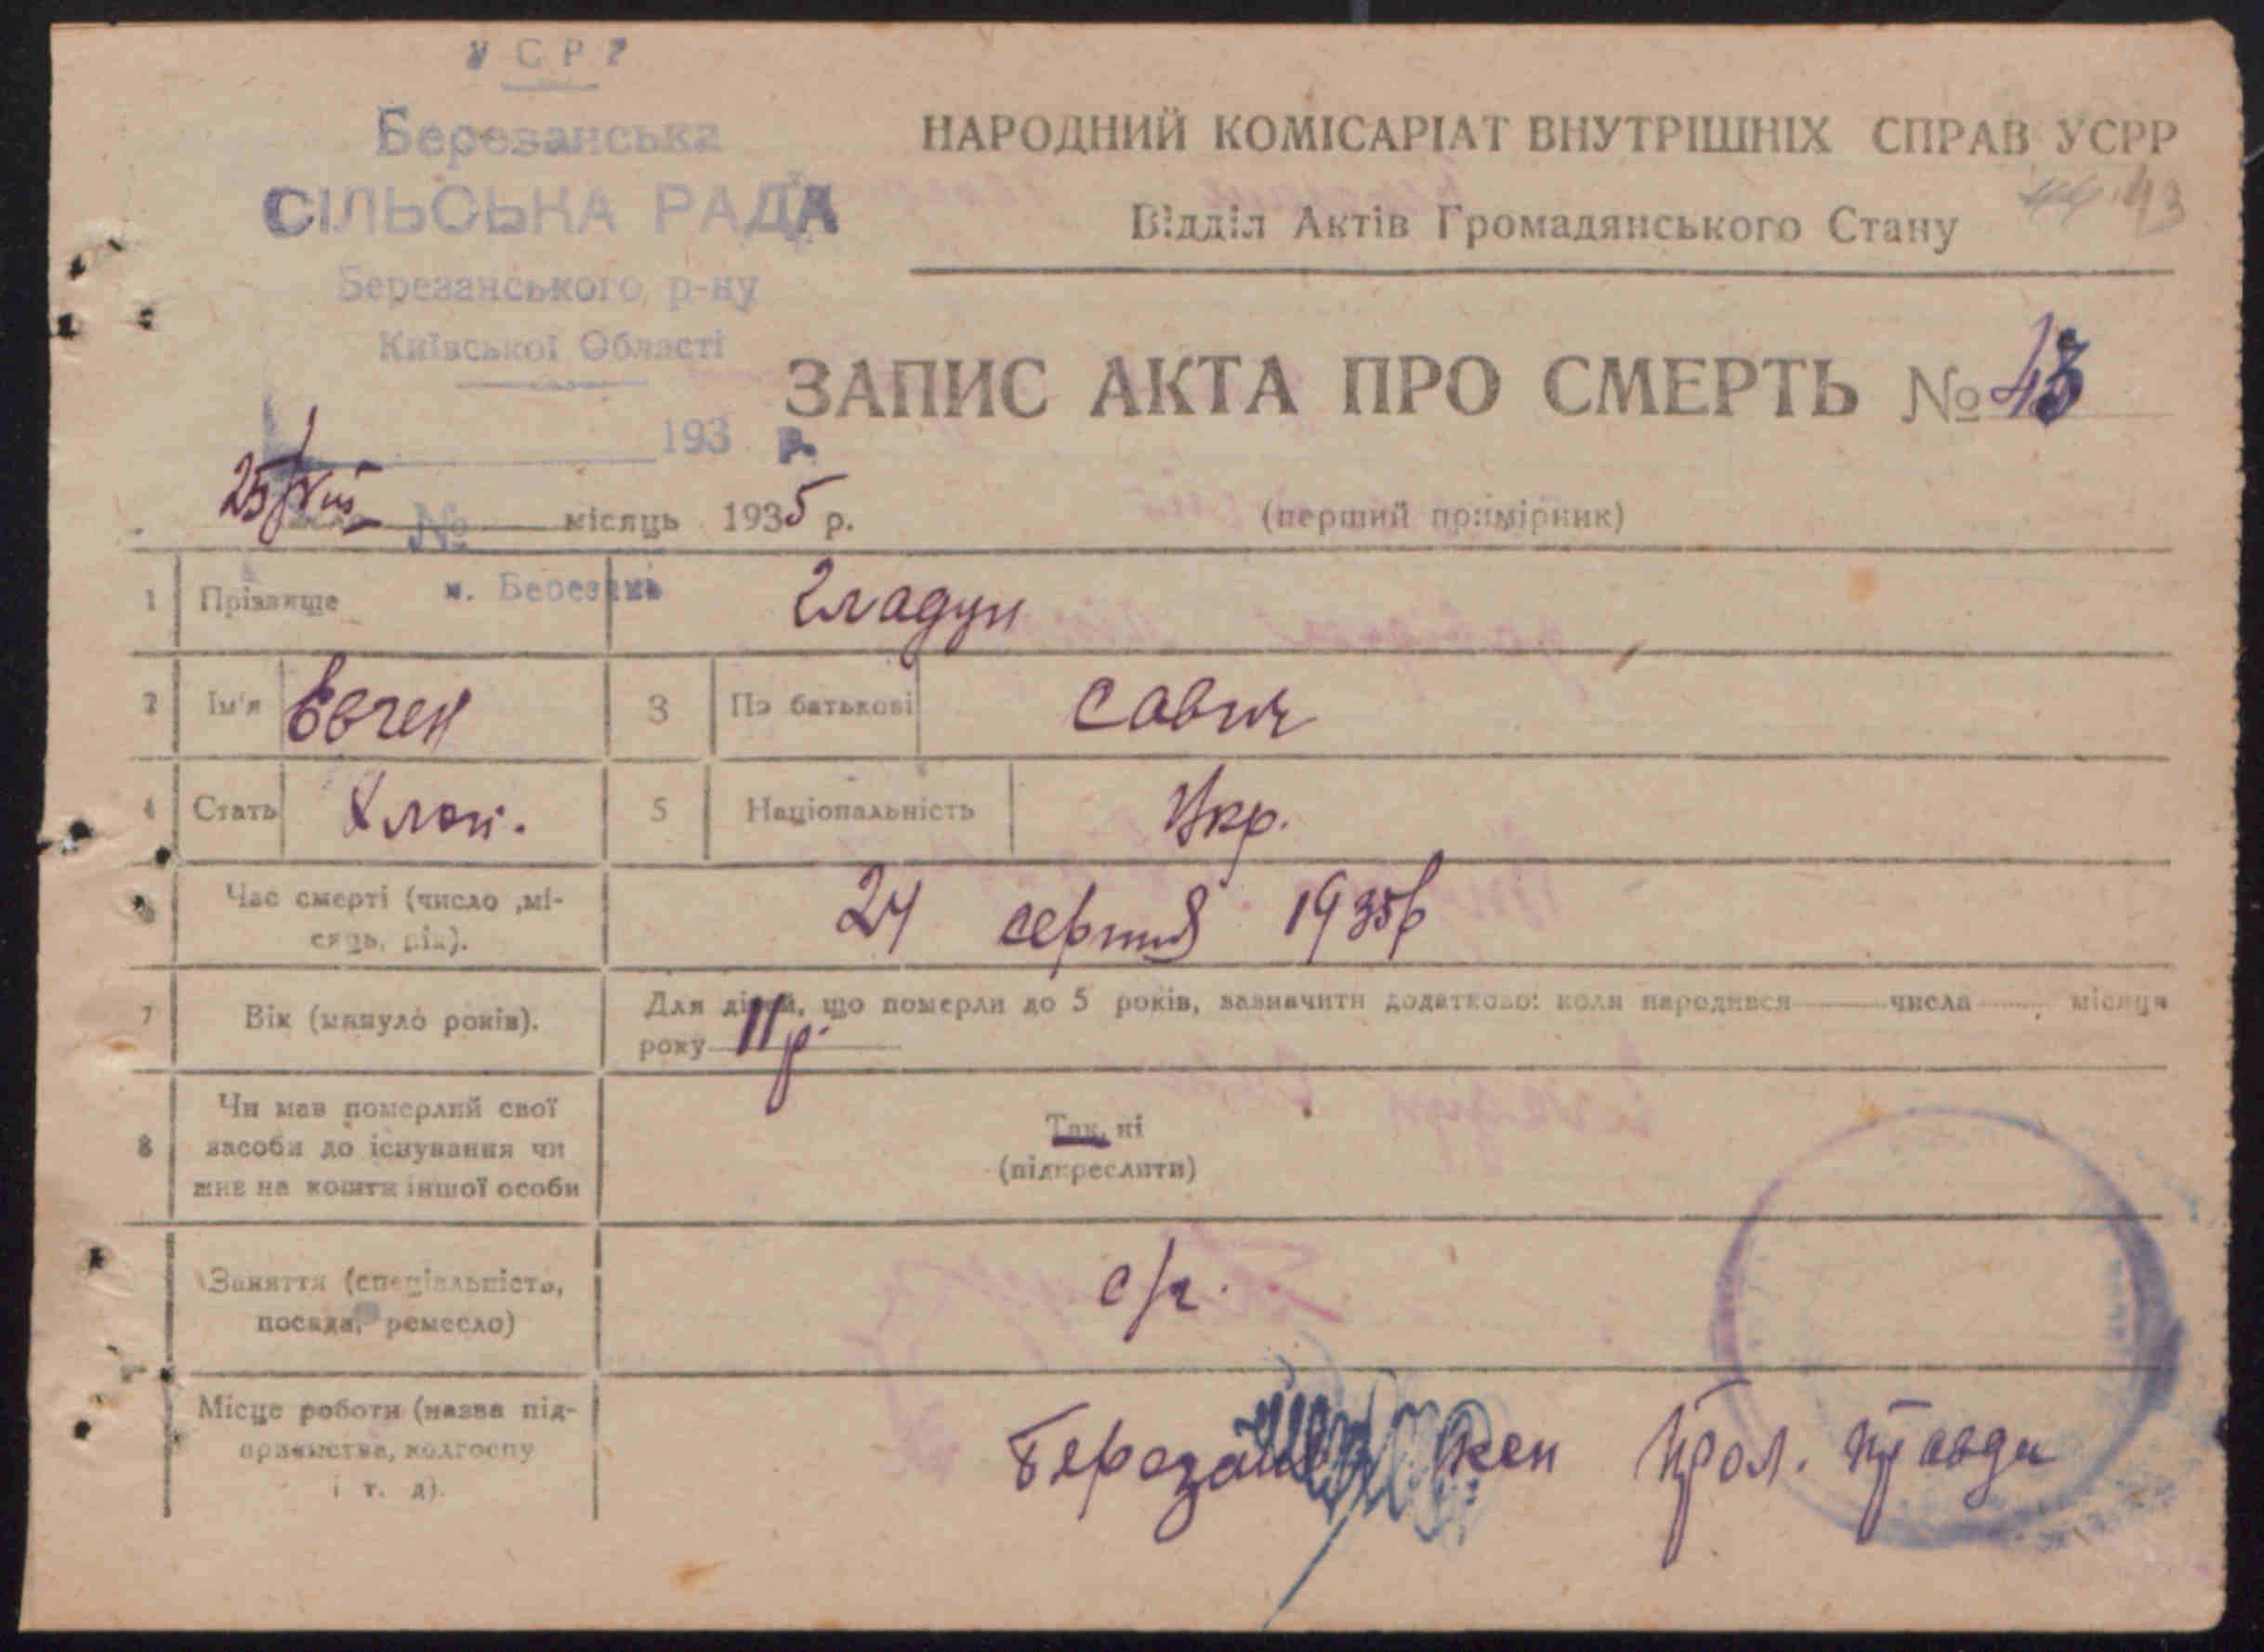 УСРР
Березанська
СІЛЬСЬКА РАДА
Березанського р-ну
Київської Області
193 р.
№
м. Березань
НАРОДНИЙ КОМІСАРІАТ ВНУТРІШНІХ СПРАВ УСРР
43
Відділ Актів Громадянського Стану
ЗАПИС АКТА ПРО СМЕРТЬ № 43
25/VIII місяць 1935 р.
(перший примірник)
1 Прізвище Гладун
2 Ім'я Евген 3 По батькові Савич
4 Стать Хлоп. 5 Національність Укр.
6 Час смерті (число ,мі-
сяць, рік). 24 серпня 1935р
7 Вік (минуло років). Для дітей, що померли до 5 років, зазначити додатково: коли народився числа місяця
року 11р.
8 Чи мав померлий свої
засоби до існування чи
жив на кошти іншої особи
Так, ні
(підкреслити)
Заняття (спеціальність,
посада, ремесло) с/г.
Місце роботи (назва під-
приємства, колгоспу
і т. д).
Прол. Правди